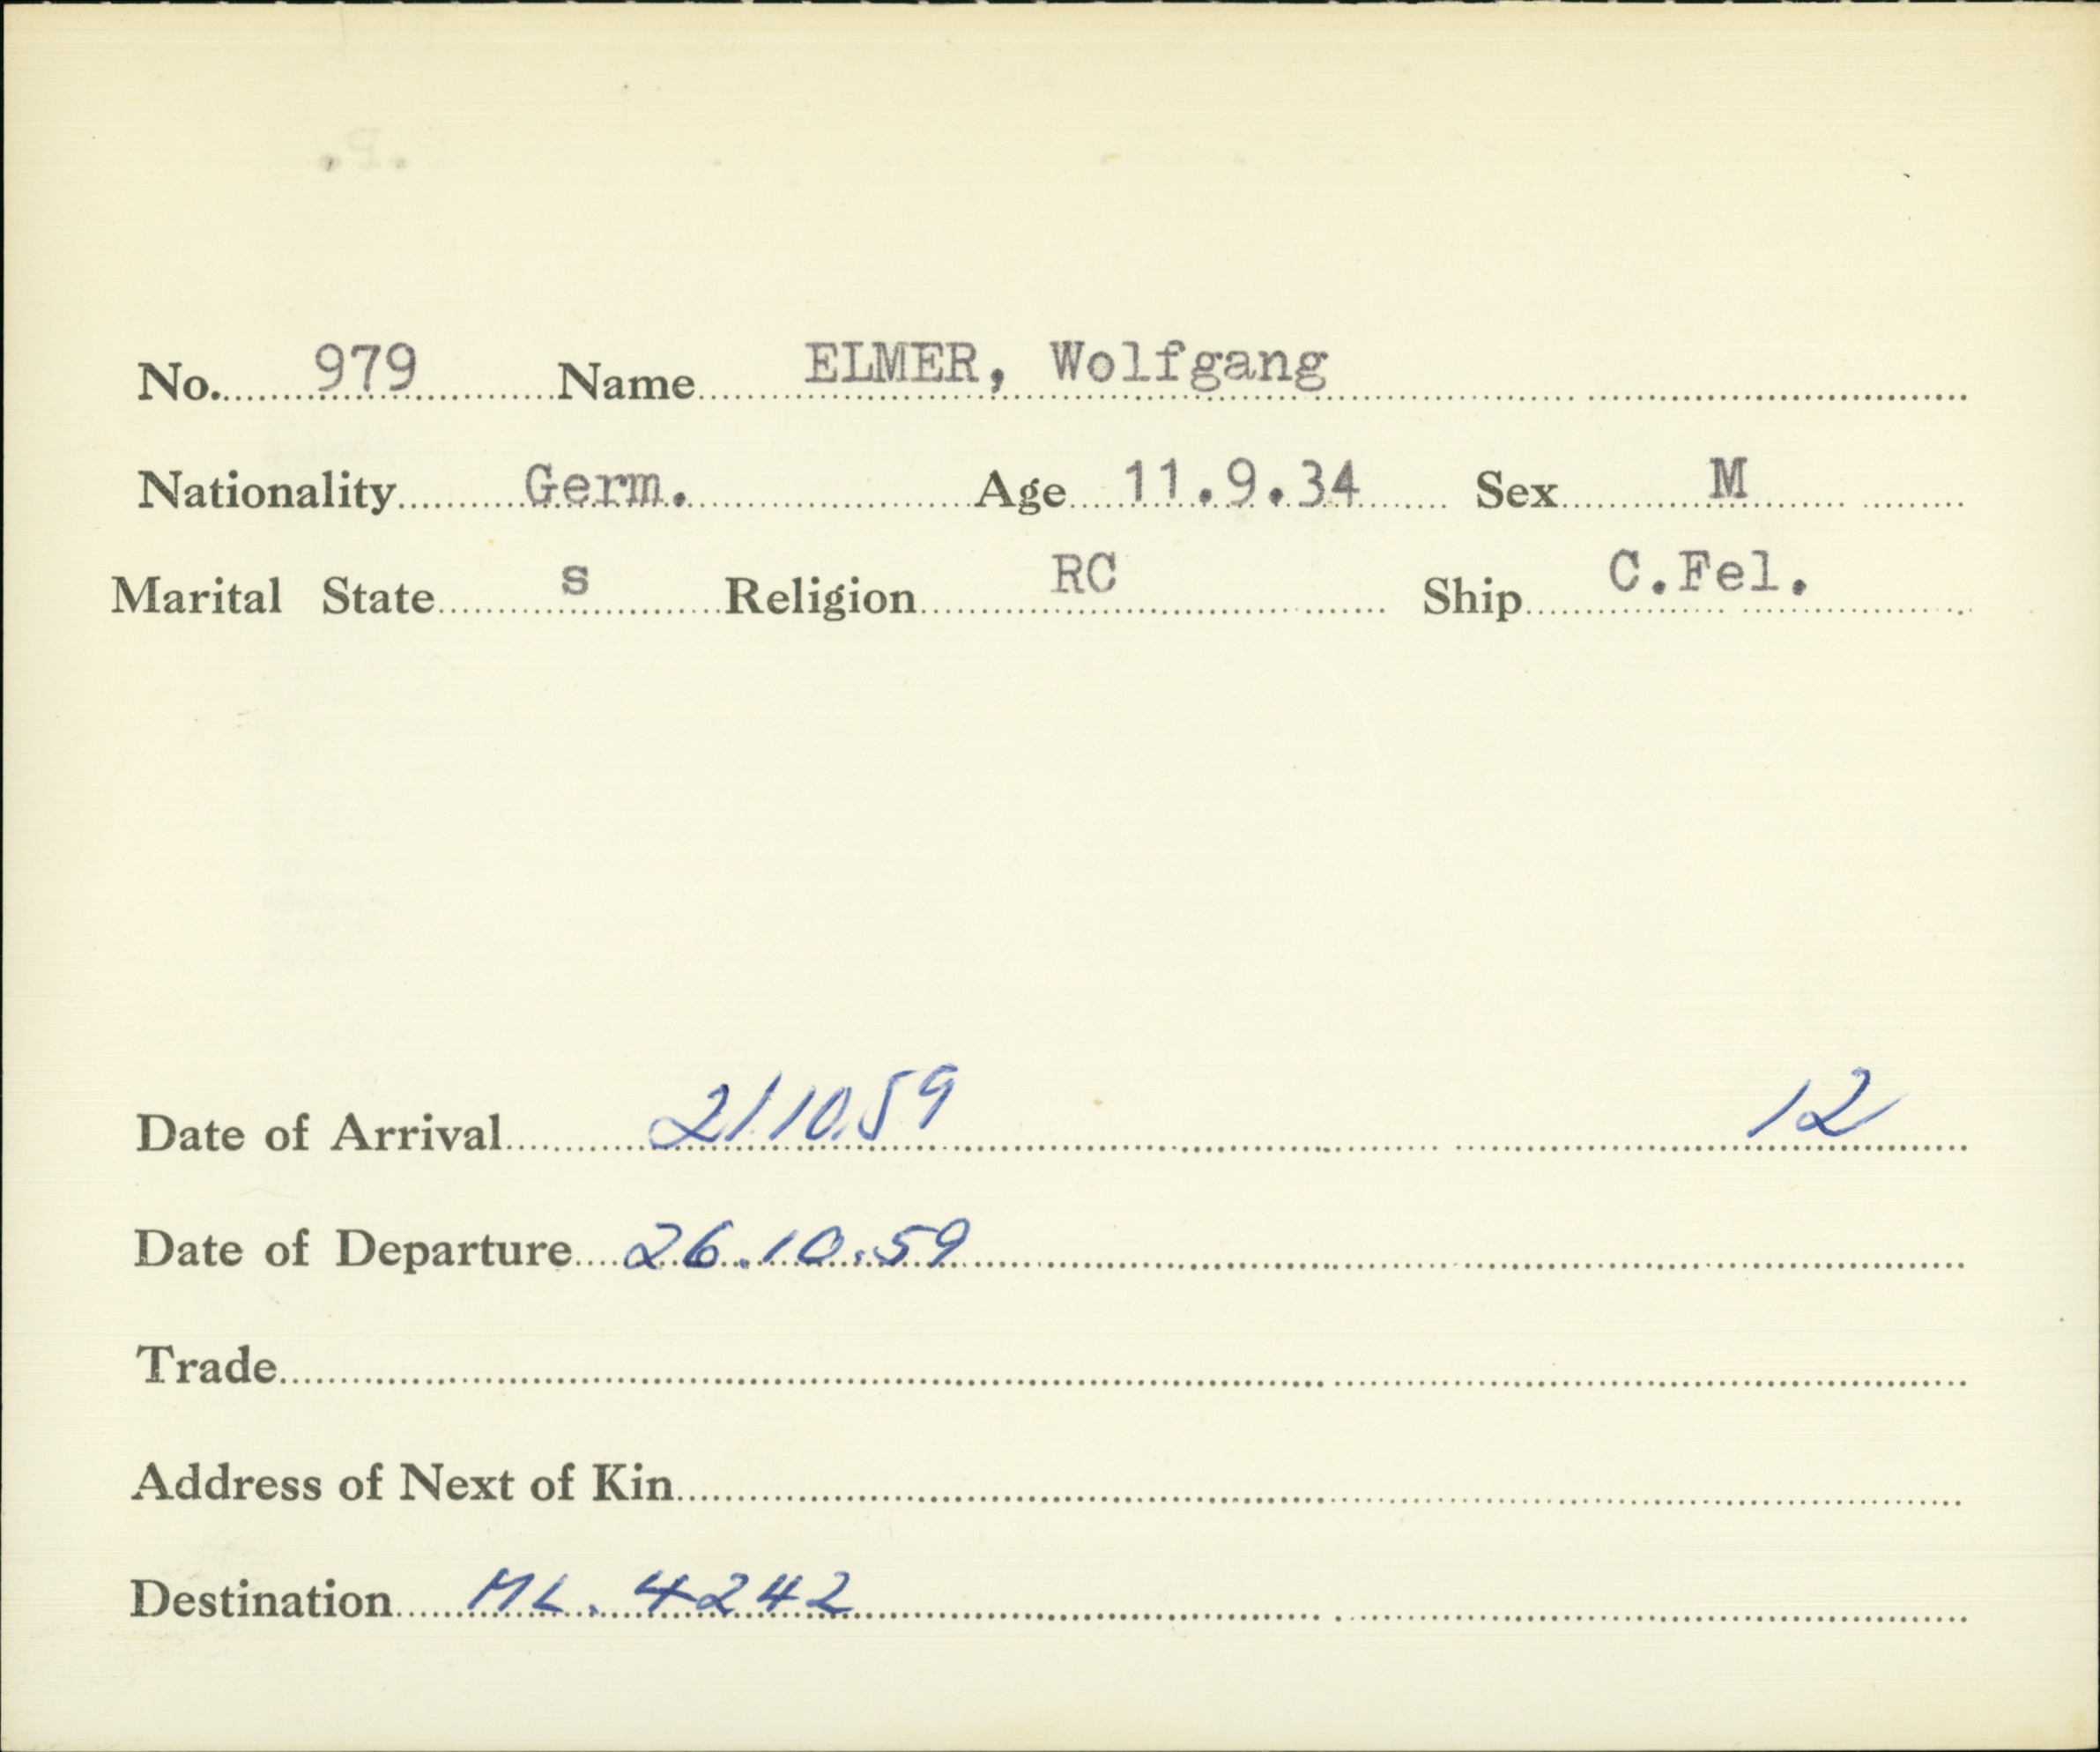 No. 979 Name ELMER, Wolfgang
Nationality Germ. Age 11.9.34 Sex M
Marital State s Religion RC Ship C.Fel.
Date of Arrival 21.10.59 12
Date of Departure 26.10.59
Trade
Address of Next of Kin
Destination ML. 4242